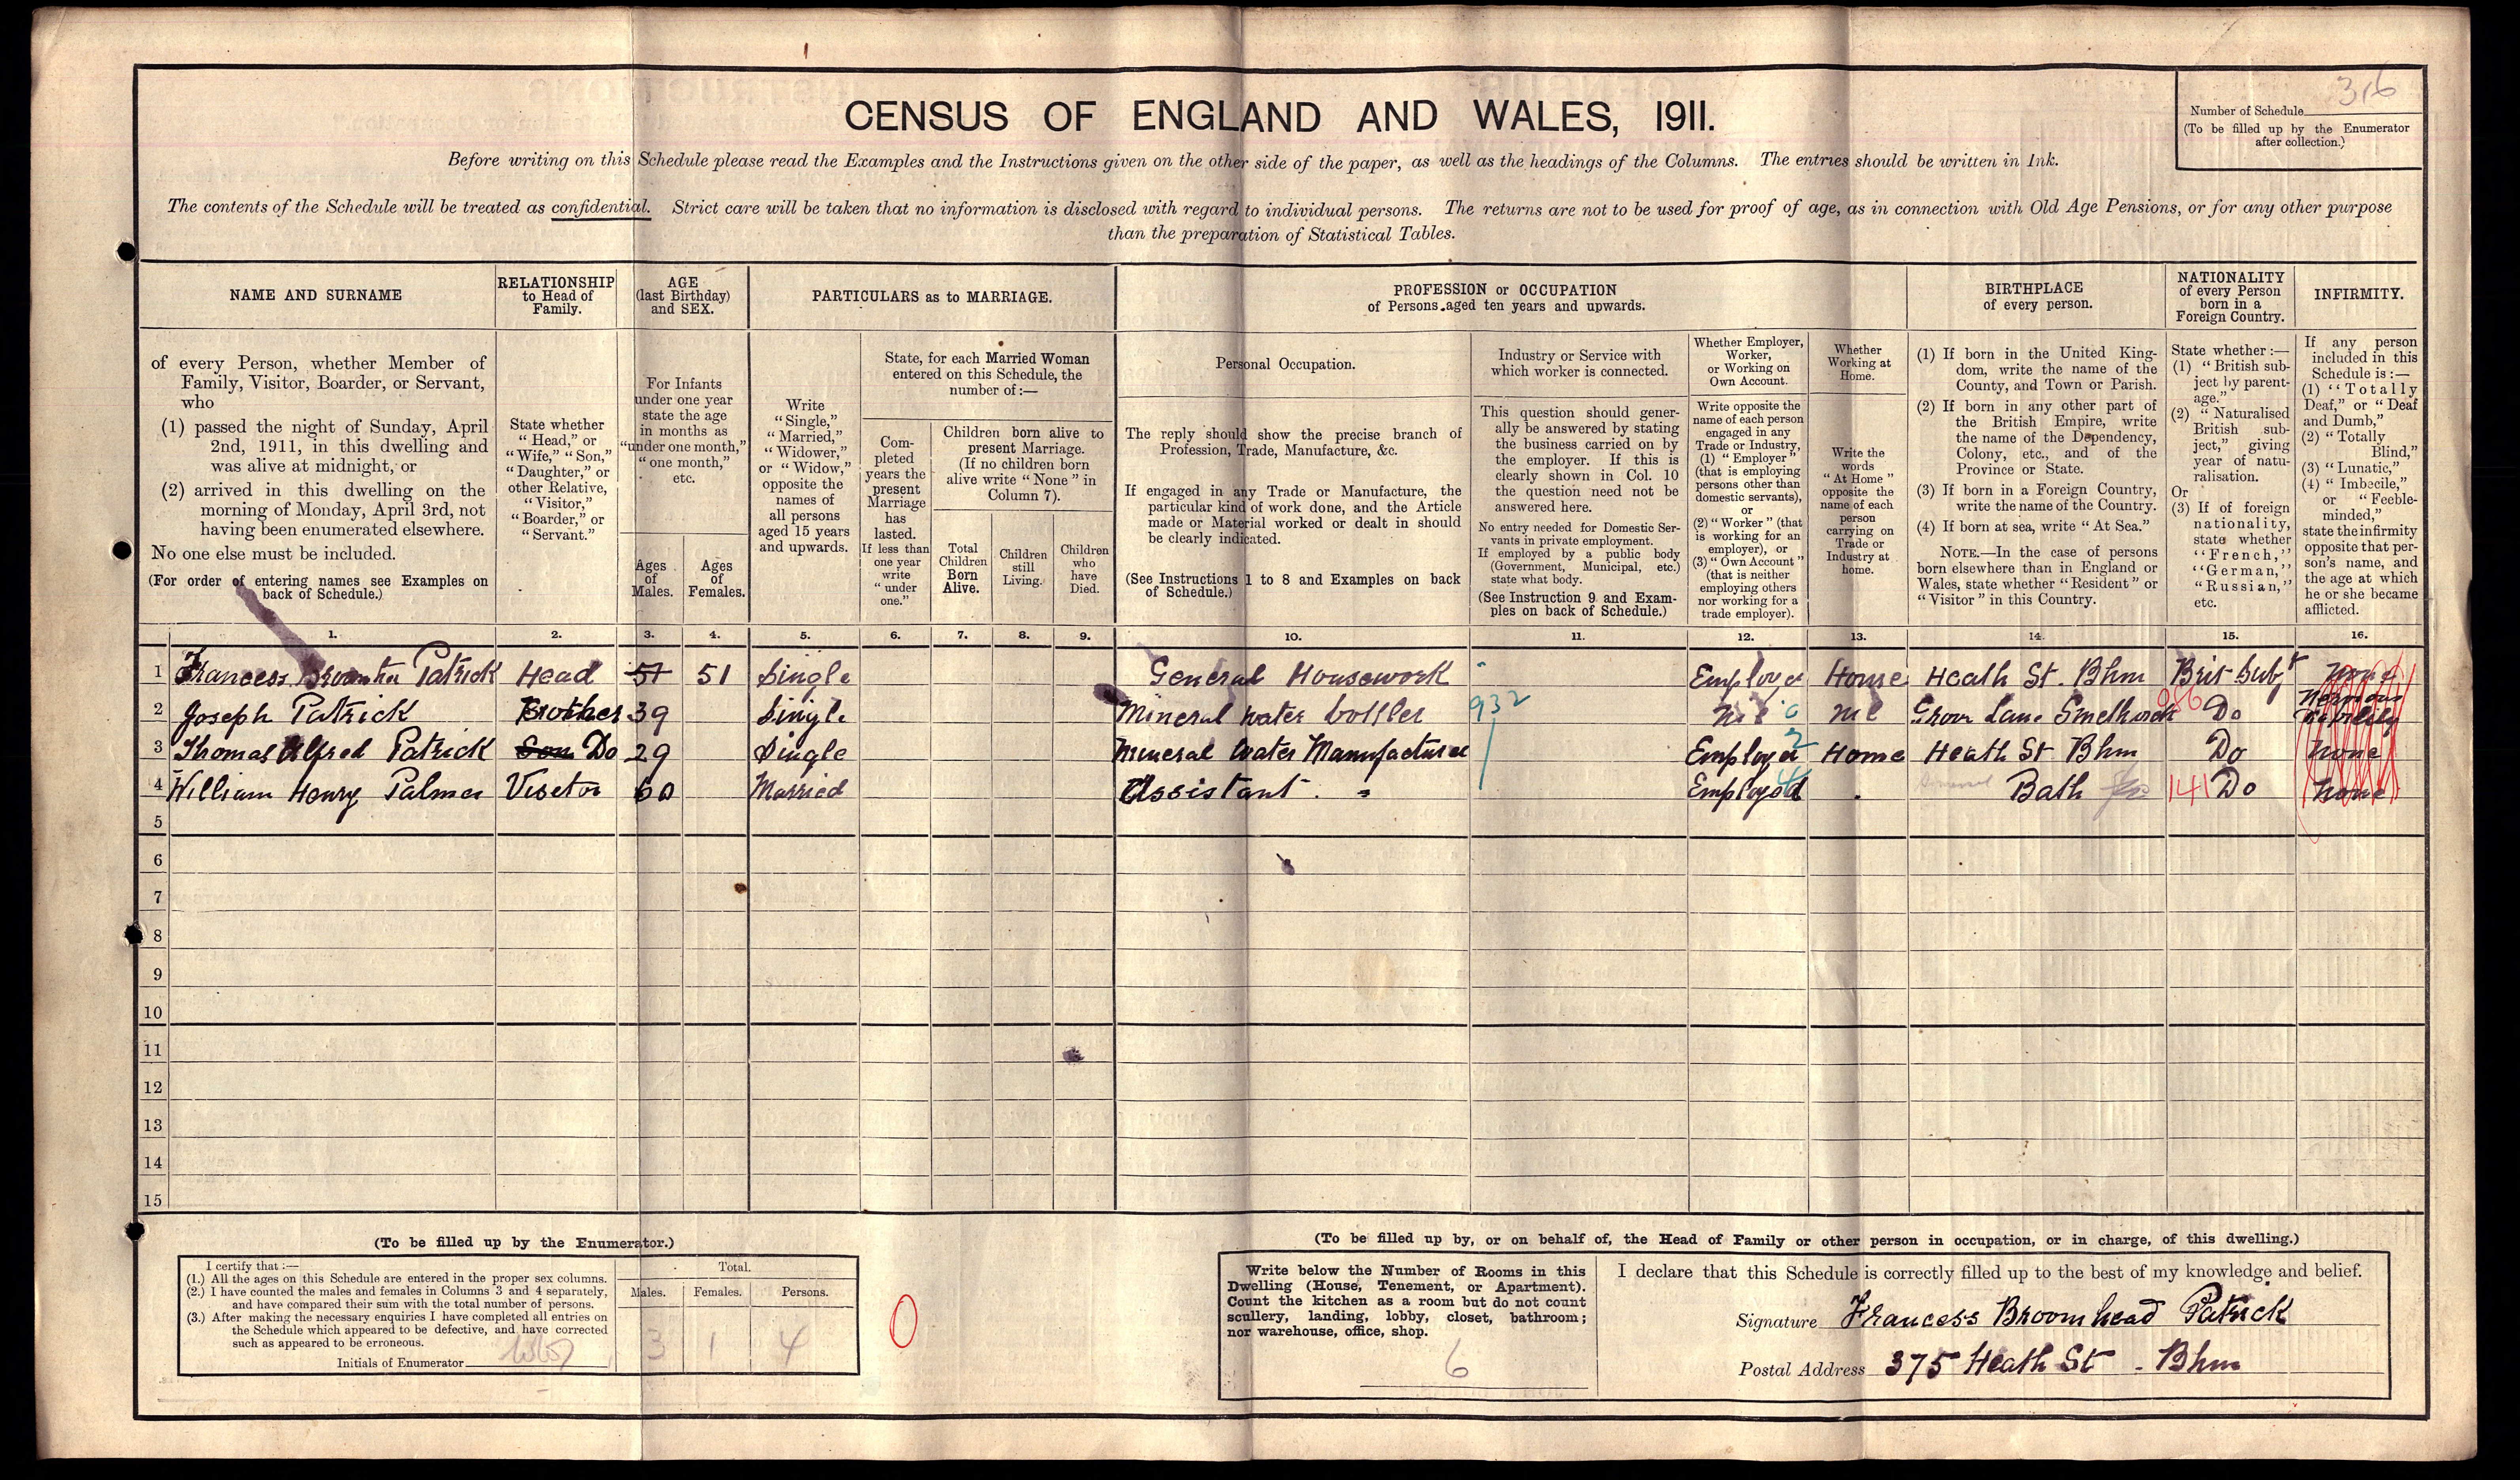 316
Number of Schedule
(To be filled up by the Enumerator
after collection.)
CENSUS OF ENGLAND AND WALES, 1911.
Before writing on this Schedule please read the Examples and the Instructions given on the other side of the paper, as well as the headings of the Columns. The entries should be written in Ink.
The contents of the Schedule will be treated as confidential. Strict care will be taken that no information is disclosed with regard to individual persons. The returns are not to be used for proof of age, as in connection with Old Age Pensions, or for any other purpose
than the preparation of Statistical Tables.
NAME AND SURNAME
of every Person, whether Member of
Family, Visitor, Boarder, or Servant,
who
(1) passed the night of Sunday, April
2nd, 1911, in this dwelling and
was alive at midnight, or
(2) arrived in this dwelling on the
morning of Monday, April 3rd, not
having been enumerated elsewhere.
No one else must be included.
(For order of entering names see Examples on
back of Schedule.)
RELATIONSHIP
to Head of
Family.
State whether
"Head," or
"Wife," "Son,"
"Daughter," or
other Relative,
"Visitor,"
"Boarder," or
"Servant."
AGE
(last Birthday)
and SEX.
For Infants
under one year
state the age
in months as
"under one month,"
"one month,"
etc.
Ages
of
Males.
Ages
of
Females.
PARTICULARS as to MARRIAGE.
Write
"Single,"
"Married,"
"Widower,"
or "Widow,"
opposite the
names of
all persons
aged 15 years
and upwards.
State, for each Married Woman
entered on this Schedule, the
number of:—
Com-
pleted
years the
present
Marriage
has
lasted.
If less than
one year
write
"under
one."
Children born alive to
present Marriage.
(If no children born
alive write "None" in
Column 7).
Total
Children
Born
Alive.
Children
still
Living.
Children
who
have
Died.
PROFESSION or OCCUPATION
of Persons aged ten years and upwards.
Personal Occupation.
The reply should show the precise branch of
Profession, Trade, Manufacture, &c.
If engaged in any Trade or Manufacture, the
particular kind of work done, and the Article
made or Material worked or dealt in should
be clearly indicated.
(See Instructions 1 to 8 and Examples on back
of Schedule.)
Industry or Service with
which worker is connected.
This question should gener-
ally be answered by stating
the business carried on by
the employer. If this is
clearly shown in Col. 10
the question need not be
answered here.
No entry needed for Domestic Ser-
vants in private employment.
If employed by a public body
(Government, Municipal, etc.)
state what body.
(See Instruction 9 and Exam-
ples on back of Schedule.)
Whether Employer,
Worker,
or Working on
Own Account.
Write opposite the
name of each person
engaged in any
Trade or Industry,
(1) "Employer"
(that is employing
persons other than
domestic servants),
or
(2) "Worker" (that
is working for an
employer), or
(3) "Own Account"
(that is neither
employing others
nor working for a
trade employer).
Whether
Working at
Home.
Write the
words
"At Home"
opposite the
name of each
person
carrying on
Trade or
Industry at
home.
BIRTHPLACE
of every person.
(1) If born in the United King-
dom, write the name of the
County, and Town or Parish.
(2) If born in any other part of
the British Empire, write
the name of the Dependency,
Colony, etc., and of the
Province or State.
(3) If born in a Foreign Country,
write the name of the Country.
(4) If born at sea, write "At Sea."
NOTE.—In the case of persons
born elsewhere than in England or
Wales, state whether "Resident" or
"Visitor" in this Country.
NATIONALITY
of every Person
born in a
Foreign Country.
State whether :—
(1) "British sub-
ject by parent-
age."
(2) "Naturalised
British sub-
ject," giving
year of natu-
ralisation.
Or
(3) If of foreign
nationality,
state whether
"French,"
"German,"
"Russian,"
etc.
INFIRMITY.
If any person
included in this
Schedule is:—
(1) "Totally
Deaf," or "Deaf
and Dumb,"
(2) "Totally
Blind,"
(3) "Lunatic,"
(4) "Imbecile,"
or "Feeble-
minded,"
state the infirmity
opposite that per-
son's name, and
the age at which
he or she became
afflicted.
1. 2. 3. 4. 5. 6. 7. 8. 9. 10. 11. 12. 13. 14. 15. 16.
1 Francess Patrick Head 51 51 Single General Housework Employer Home Heath St. Bhm Brit Subt none
2 Joseph Patrick Brother 39 Single Mineral Water bottler 932 nil 0 nil Grove Lane Smethwick 086 Do Nervous Debility
3 Thomas Alfred Patrick Son Do 29 Single Mineral Water Manufacturer Employer 2 Home Heath St Bhm Do none
4 William Henry Palmer Visetor 60 Married Assistant Employed 4 Bath 141 Do none
5
6
7
8
9
10
11
12
13
14
15
(To be filled up by the Enumerator.)
I certify that :—
(1.) All the ages on this Schedule are entered in the proper sex columns.
(2.) I have counted the males and females in Columns 3 and 4 separately,
and have compared their sum with the total number of persons.
(3.) After making the necessary enquiries I have completed all entries on
the Schedule which appeared to be defective, and have corrected
such as appeared to be erroneous.
Initials of Enumerator
Total.
Males. Females. Persons.
3 1 4
0
(To be filled up by, or on behalf of, the Head of Family or other person in occupation, or in charge, of this dwelling.)
Write below the Number of Rooms in this
Dwelling (House, Tenement, or Apartment).
Count the kitchen as a room but do not count
scullery, landing, lobby, closet, bathroom;
nor warehouse, office, shop.
6
I declare that this Schedule is correctly filled up to the best of my knowledge and belief.
Signature Francess Broomhead Patrick
Postal Address 375 Heath St - Bhm